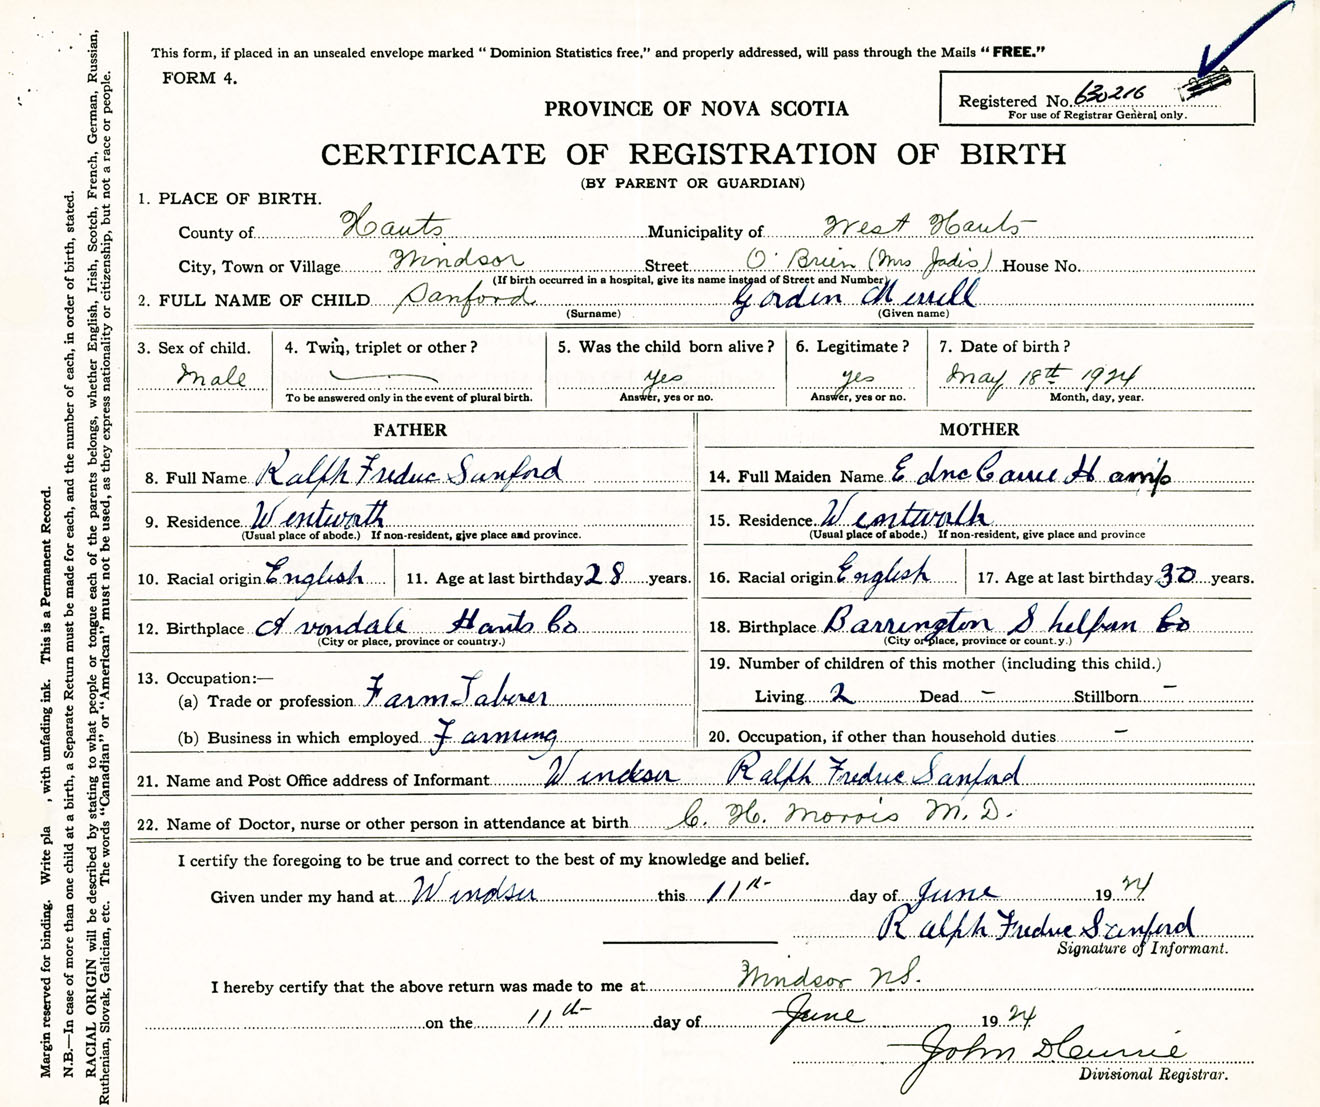 This form, if placed in an unsealed envelope marked “ Dominion Statistics free,” and properly addressed, will pass through the Mails “ FREE.”
FORM 4.
Registered No. 630216
For use of Registrar General only.
PROVINCE OF NOVA SCOTIA
CERTIFICATE OF REGISTRATION OF BIRTH
(BY PARENT OR GUARDIAN)
1. PLACE OF BIRTH.
County of Hants Municipality of West Hants
City, Town or Village Windsor Street O'Brien (Mrs Jadis) House No.
(If birth occurred in a hospital, give its name instead of Street and Number)
2. FULL NAME OF CHILD Sanford Gordin Merrill
(Surname) (Given name)
3. Sex of child. 4. Twin, triplet or other ? 5. Was the child born alive ? 6. Legitimate ? 7. Date of birth ?
Male yes yes May 18th 1924
To be answered only in the event of plural birth. Answer, yes or no. Answer, yes or no. Month, day, year.
FATHER MOTHER
8. Full Name Ralph Fredric Sanford 14. Full Maiden Name Edne Carrie
9. Residence Wentworth 15. Residence Wentworth
(Usual place of abode.) If non-resident, give place and province. (Usual place of abode.) If non-resident, give place and province
10. Racial origin English 11. Age at last birthday 28 years. 16. Racial origin English 17. Age at last birthday 30 years.
12. Birthplace Avondale Hants Co 18. Birthplace Barrington Shelburn Co
(City or place, province or country.) (City or place, province or count.y.)
13. Occupation:— 19. Number of children of this mother (including this child.)
(a) Trade or profession Farm Laborer Living 2 Dead – Stillborn –
(b) Business in which employed Farming 20. Occupation, if other than household duties –
21. Name and Post Office address of Informant Windsor Ralph Fredric Sanford
22. Name of Doctor, nurse or other person in attendance at birth C. H. Morris M.D.
I certify the foregoing to be true and correct to the best of my knowledge and belief.
Given under my hand at Windsor this 11th day of June 1924
Ralph Fredric Sanford
Signature of Informant.
I hereby certify that the above return was made to me at Windsor N.S.
on the 11th day of June 1924
John D Currie
Divisional Registrar.
Margin reserved for binding. Write pla , with unfading ink. This is a Permanent Record.
N.B.—In case of more than one child at a birth, a Separate Return must be made for each, and the number of each, in order of birth, stated.
RACIAL ORIGIN will be described by stating to what people or tongue each of the parents belongs, whether English, Irish, Scotch, French, German, Russian,
Ruthenian, Slovak, Galician, etc. The words “Canadian” or “American” must not be used, as they express nationality or citizenship, but not a race or people.